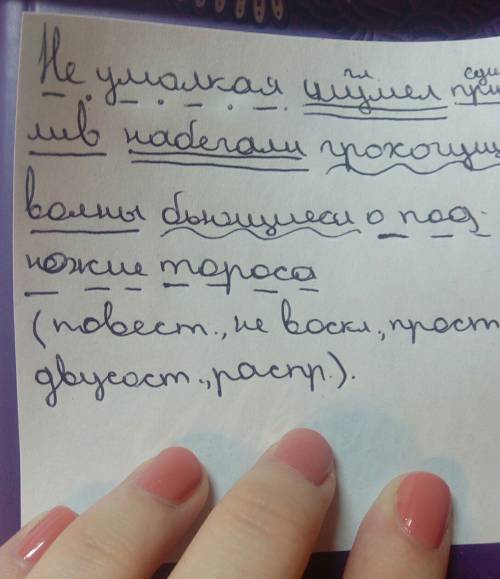 гл сущ
Не умолкая шумел при
лив набегали грохочущ
волны бьющиеся о под-
ножие тороса
(повест., не воскл, прост
двусост., распр.).